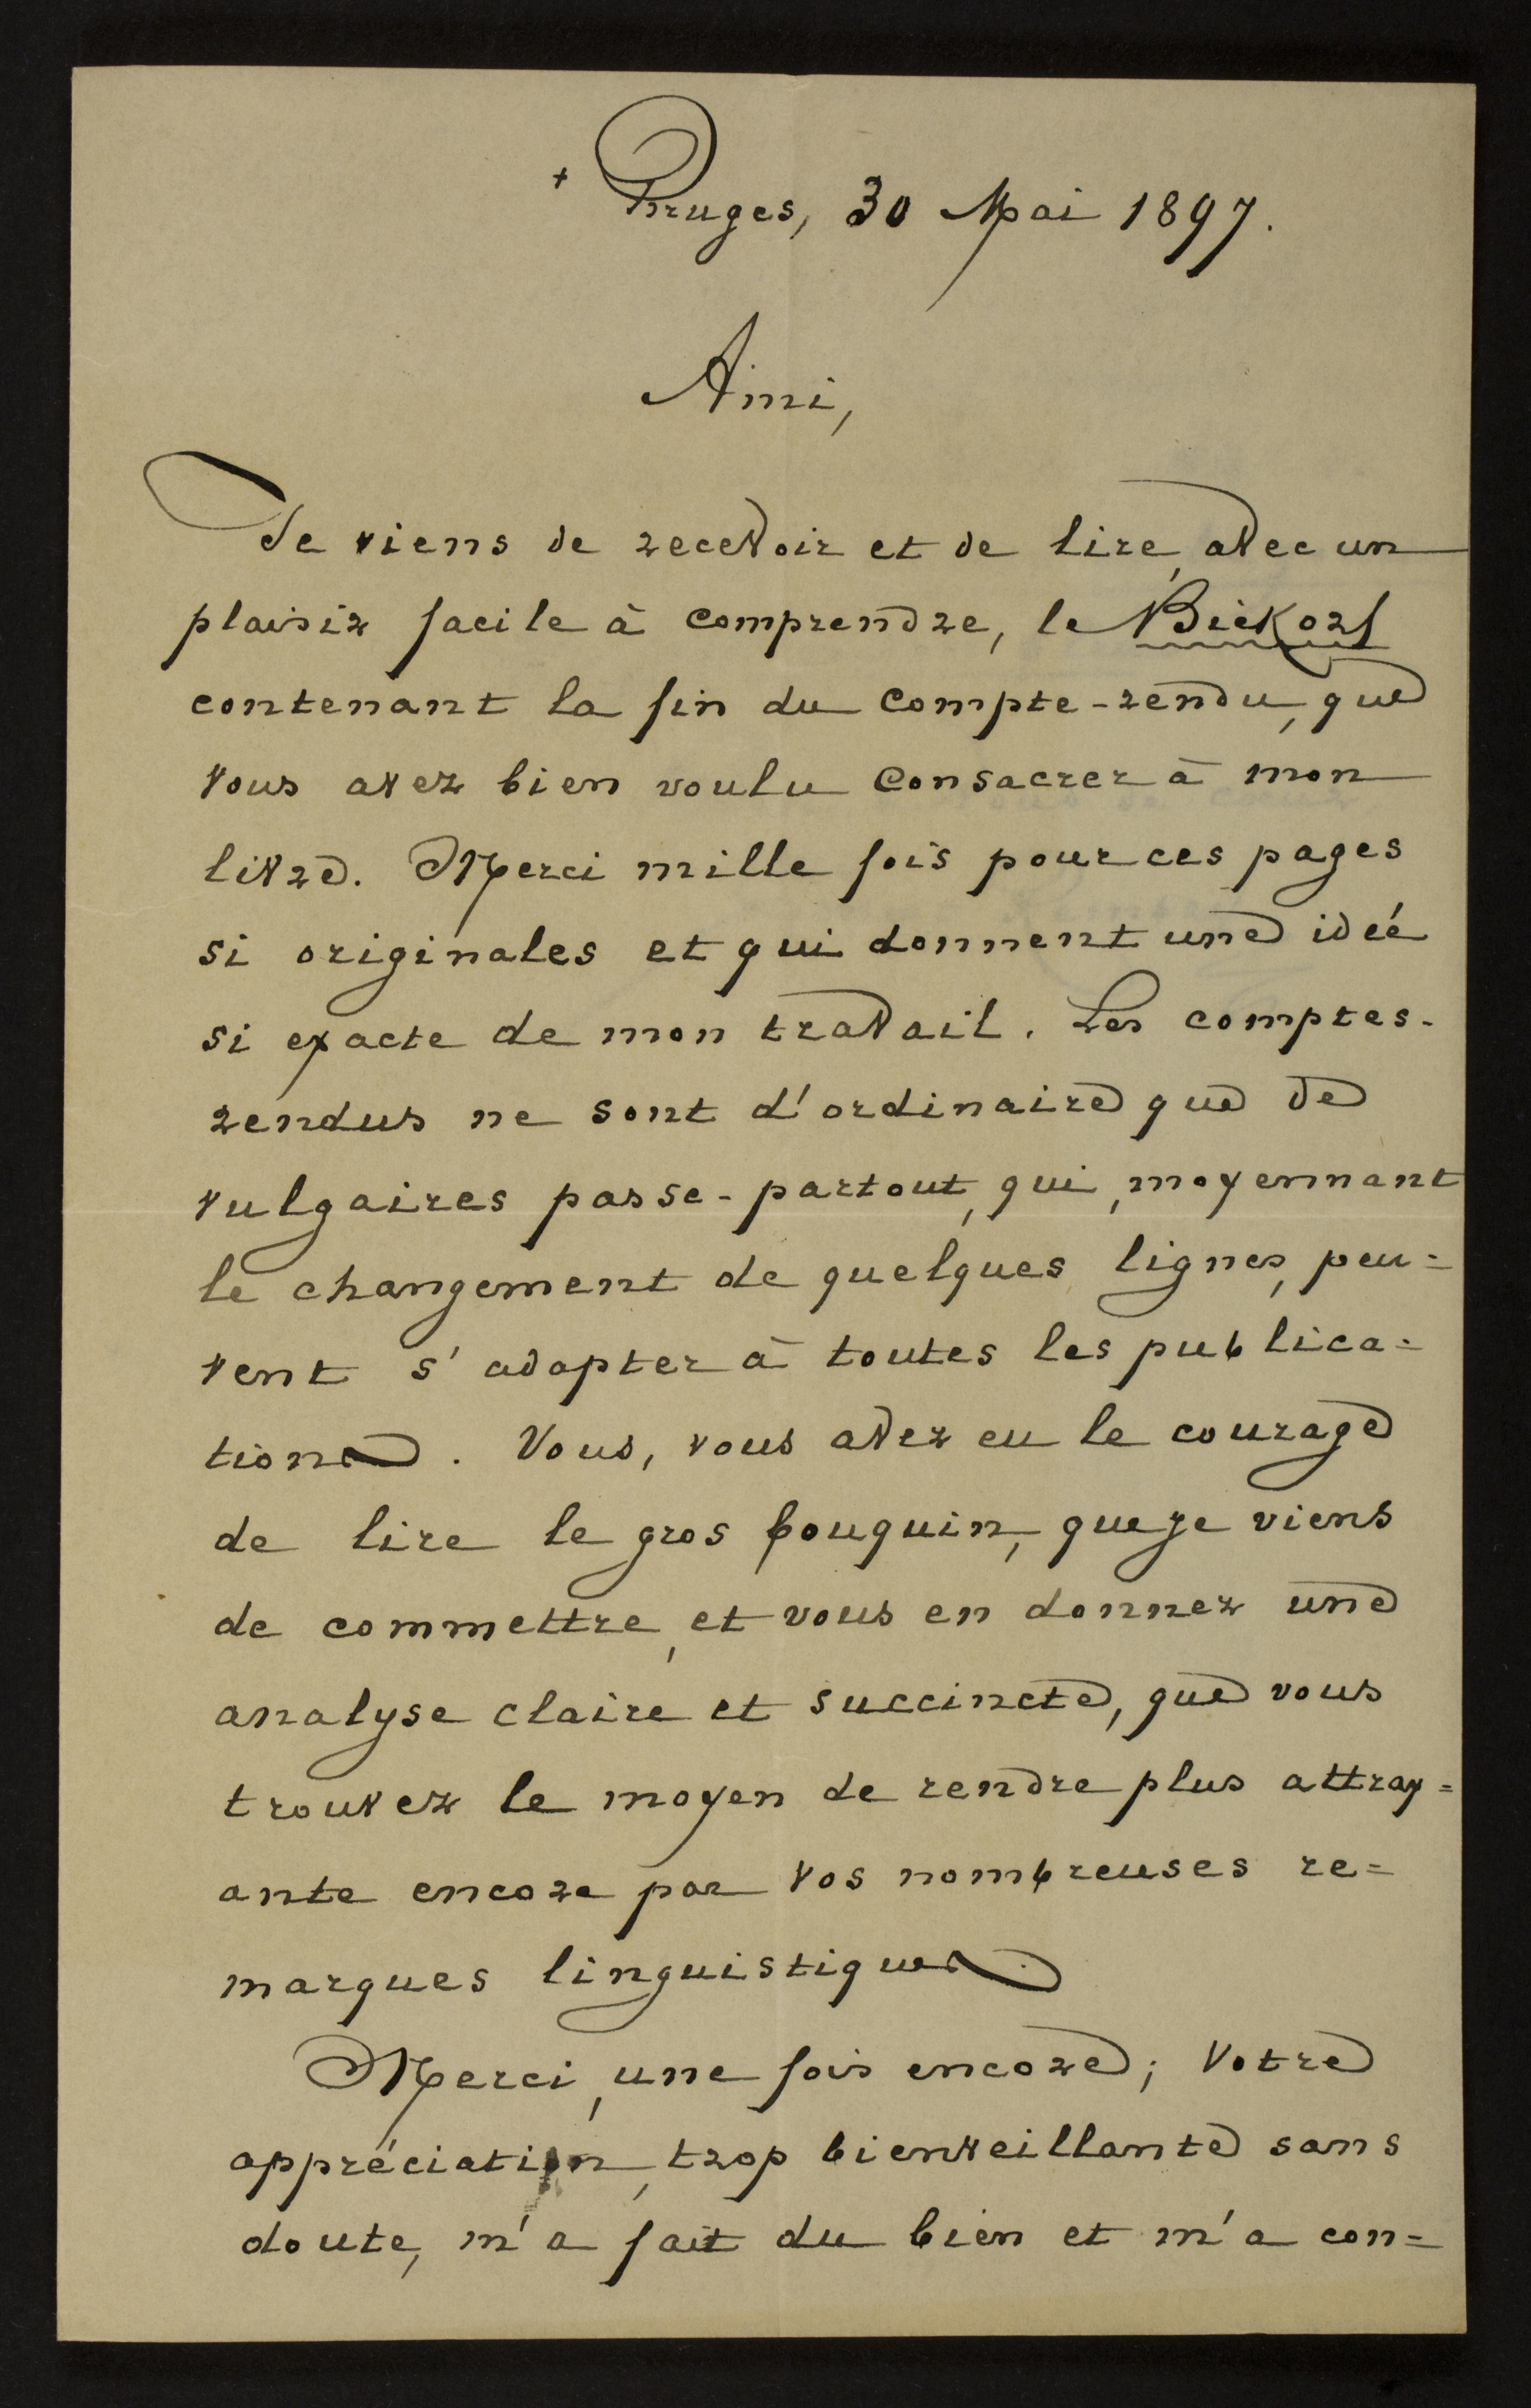 + Bruges, 30 Mai 1897.
Ami,
Je viens de recevoir et de lire, avec un
plaisir facile à comprendre, le Biekorf
contenant la fin du compte-rendu, que
vous avez bien voulu consacrer à mon
livre. Merci mille fois pour ces pages
si originales et qui donnent une idée
si exacte de mon travail. Les comptes-
rendus ne sont d'ordinaire que de
vulgaires passe-partout, qui, moyennant
le changement de quelques lignes, peu=
vent s'adapter à toutes les publica=
tions. Vous, vous avez eu le courage
de lire le gros bouquin, que je viens
de commettre, et vous en donnez une
analyse claire et succincte, que vous
trouvez le moyen de rendre plus attray=
ante encore par vos nombreuses re=
marques linguistiques.
Merci, une fois encore; votre
appréciation, trop bienveillante sans
doute, m'a fait du bien et m'a con=